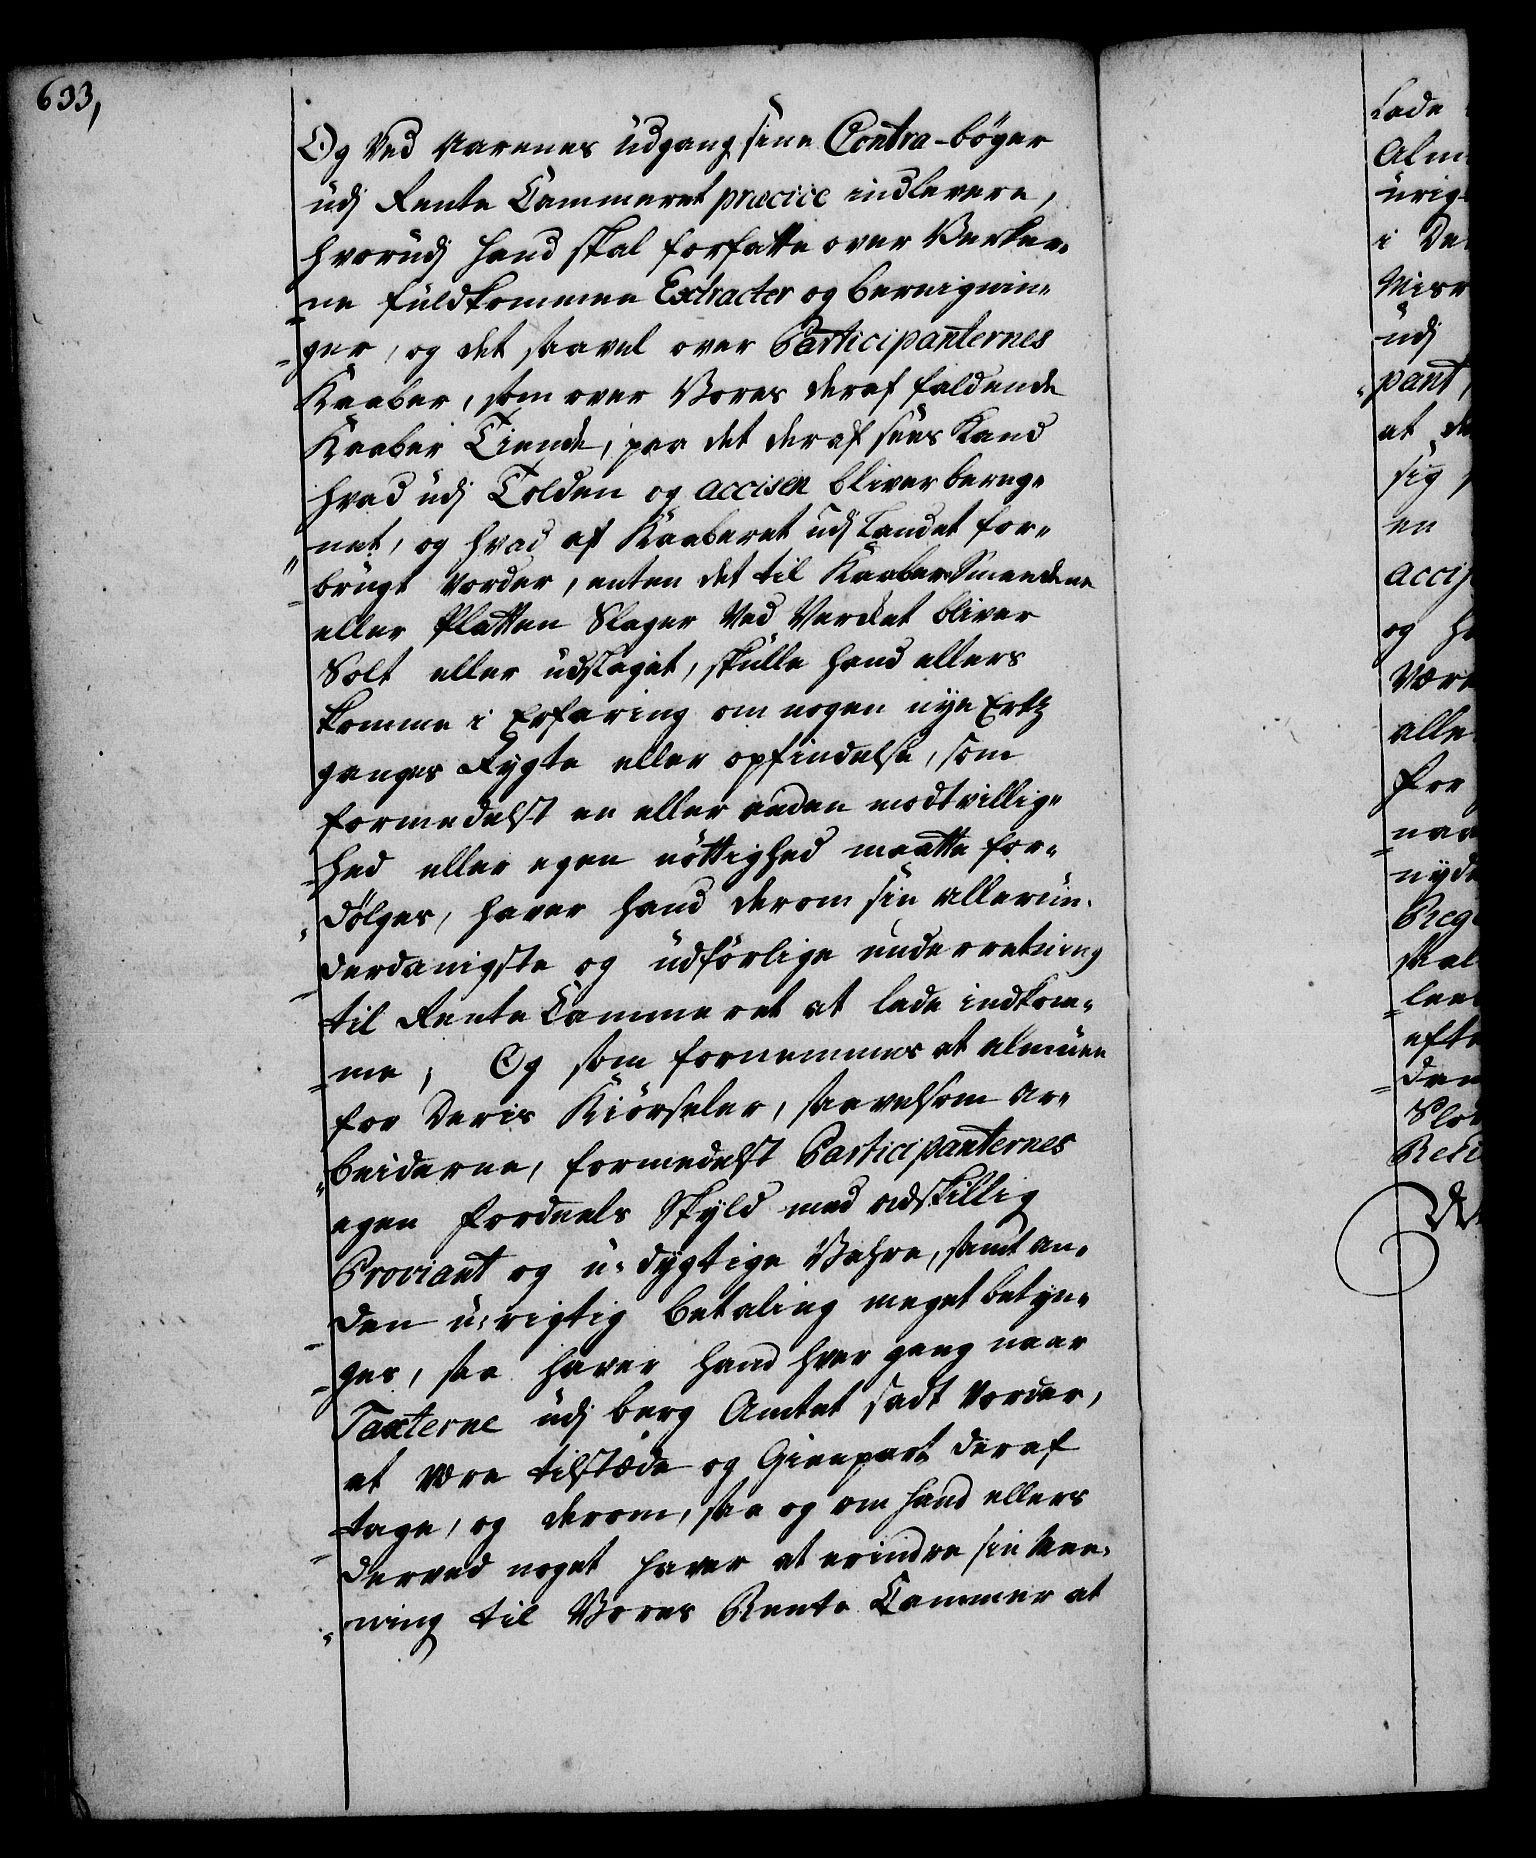 633,
Og Ved Aarenes üdgang sine Contra-bøger
üdj Rente Cammeret præcice indlevere,
hvorüdj hand skal forfatte over Verker„
ne füldkommen Extracter og bereignin„
„ger, og det saavel over Participanternes
Kaaber, som over Vores deraf faldende
Kaaber Tiende, paa det deraf sees Kand
hvad üdj Tolden og accisen bliver bereg„
„net, og hvad af Kaaberet üdj Landet for„
„brügt vorder, enten det til KaaberSmeedene
eller Platten Slager Ved Verket bliver
Solt eller üdslaget, skülle hand ellers
komme i Erfaring om nogen nye Ertz
ganges Rygte eller opfindelse, som
formedelst en eller anden modtvillig„
„hed eller egen nöttighed maatte for„
„dølges, haver hand derom sin allerün„
derdanigste og üdførlige ünderretning
til Rente Cammeret at lade indkom„
„me, Og som fornemmes at almüen
for Deris Kiörseler, saavelsom Ar„
„beiderne, formedelst Participanternes
egen fordeels Skyld med adskillig
Proviant og ü: dygtige Vahre, samt an„
den ü: rigtig betaling meget betyn„
„ges, saa haver hand hver gang naar
Taxterne üdj berg Amtet sadt vorder,
at være tilstæde og Gienpart deraf
tage, og derom, saa og om hand ellers
derved noget haver at erindre sin Mee„
„ning til Vores Rente Cammer at
Lade
Alm
ürig
i De
Misr
üdj
„pant
at de
sig
en
accis
og h
være
alle
for
naa
nyde
Reg
skal
lee
efte
den
Slot